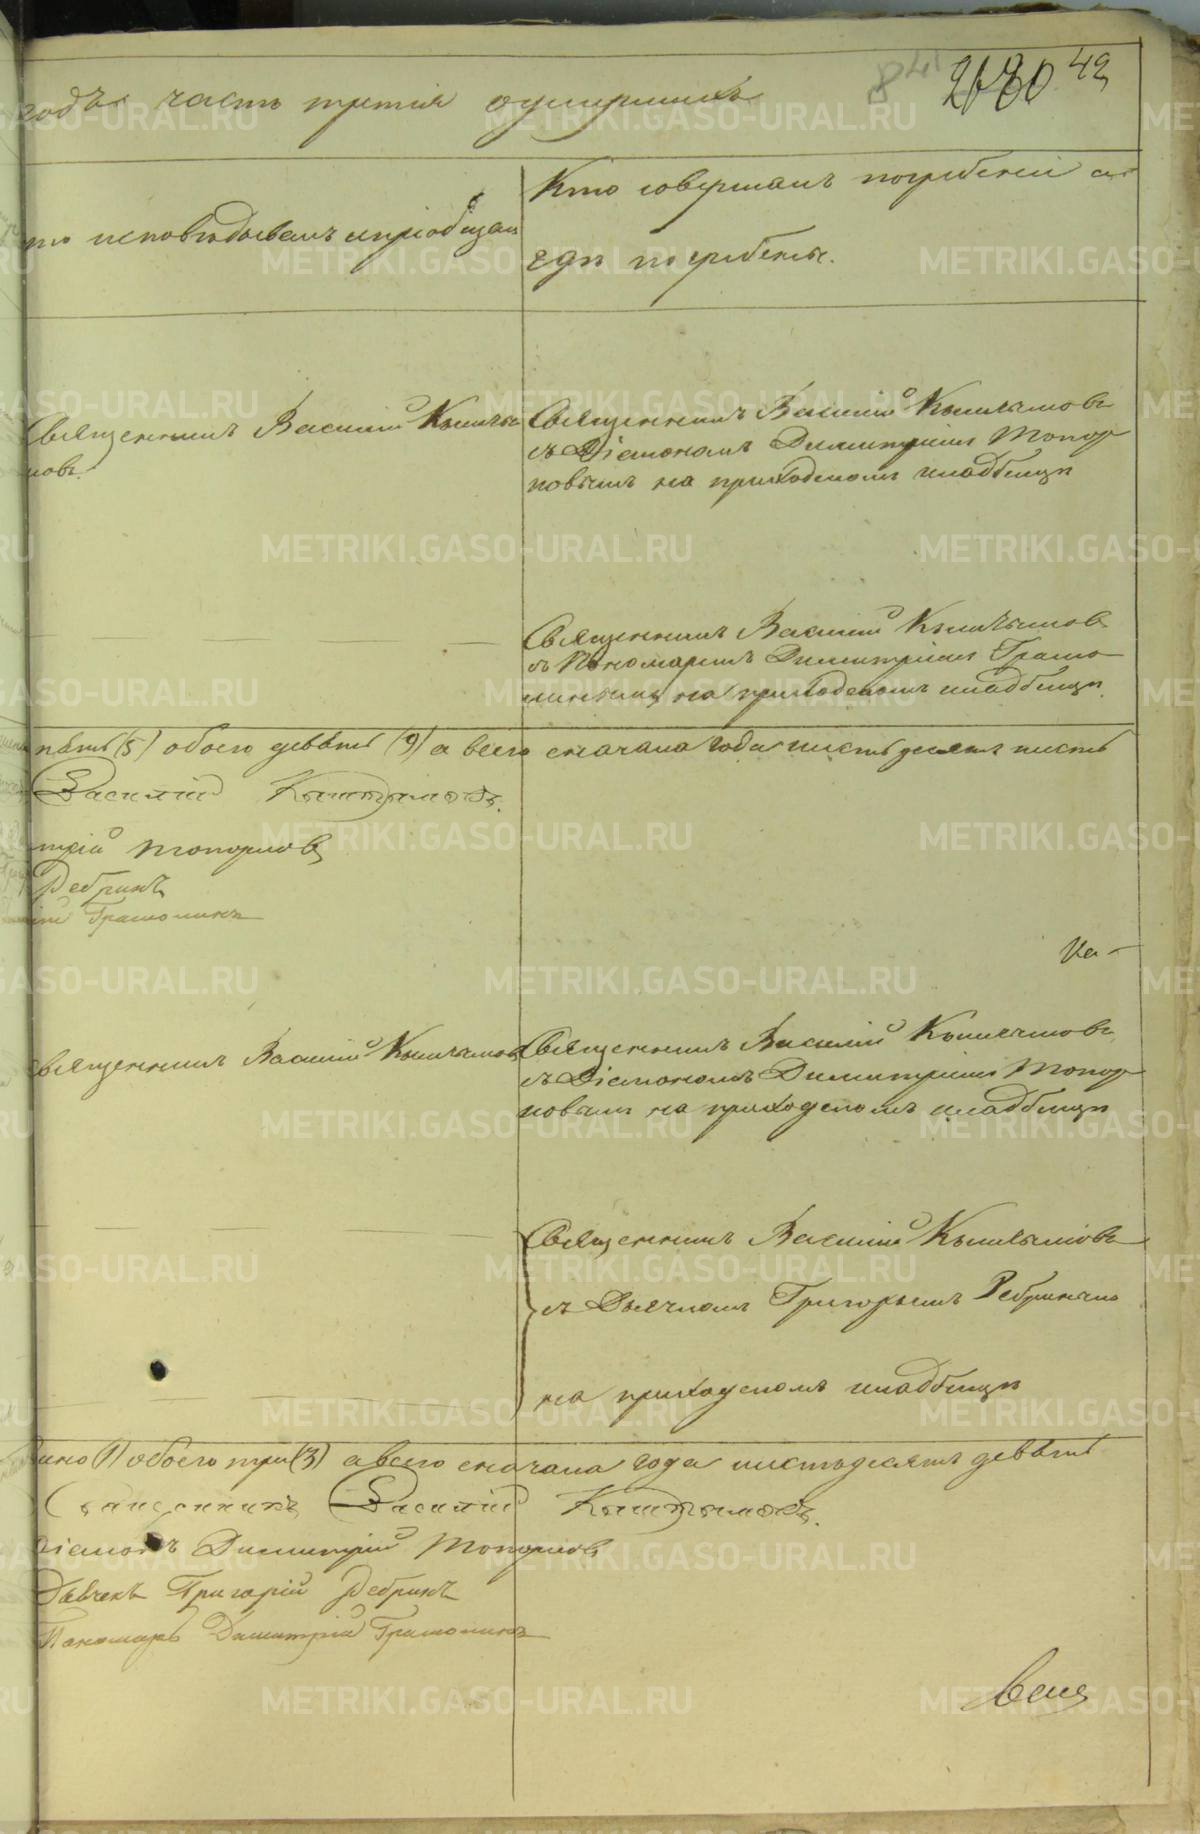 годъ часть третія о умершихъ
841 2680 42
то исповѣдывалъ и пріобщал
Кто совершалъ погребеніе и
гдѣ погребены.
Священникъ Василій Кыштымовъ
Священникъ Василій Кыштымовъ
съ Діакономъ Димитріемъ Топор
ковымъ на приходскомъ кладбищѣ
Священникъ Василій Кыштымовъ
съ Пономаремъ Димитріемъ
на приходскомъ кладбищѣ
пять (5) обоего девять (9) а всего сначала года шестьдесятъ шесть
Василій Кыштымовъ.
трій Топорковъ
Ребринъ
ій
Ка-
Священникъ Василій Кыштымовъ
Священникъ Василій Кыштымовъ
съ Діакономъ Димитріемъ Топор
ковымъ на приходскомъ кладбищѣ
Священникъ Василій Кыштымовъ
съ Дьячкомъ Григорьемъ Ребринымъ
на приходскомъ кладбищѣ
дино (1) обоего три (3) а всего сначала года шестьдесятъ девять
Священникъ Василій Кыштымовъ.
Діаконъ Димитрій Топорковъ
Дьячекъ Григорій Ребринъ
Пономарь Димитрій
METRIKI.GASO-URAL.RU